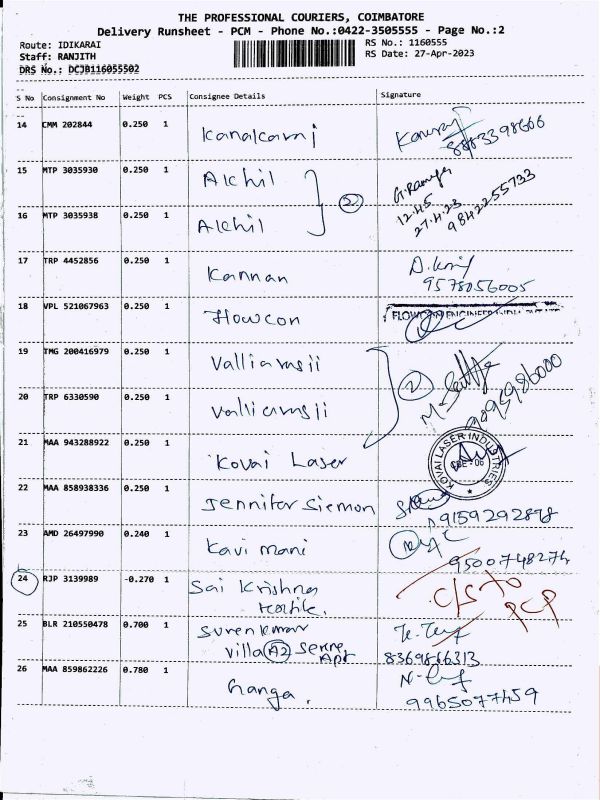 THE PROFESSIONAL COURIERS, COIMBATORE
Delivery Runsheet - PCM - Phone No.:0422-3505555 - Page No.:2
Route: IDIKARAI
RS No.: 1160555
Staff: RANJITH
RS Date: 27-Apr-2023
DRS No.: DCJB116055502
S No Consignment No Weight PCS Consignee Details Signature
14 CMM 202844 0.250 1 Kanakaraj
15 MTP 3035930 0.250 1 Akhil
(2) G. Ramya
12.45
27.4.23
9842255733
16 MTP 3035938 0.250 1 Akhil
17 TRP 4452856 0.250 1 Kannan
9578056005
18 VPL 521067963 0.250 1 Flowcon
19 TMG 200416979 0.250 1 Valliamsii
(2)
20 TRP 6330590 0.250 1 Valliamsii
21 MAA 943288922 0.250 1 Kovai Laser
KOVAI LASER INDUSTRIES
CBE - 06
22 MAA 858938336 0.250 1 Jennifer Siemon
9159292898
23 AMD 26497990 0.240 1 Kavi mani
9500748274
24 RJP 3139989 -0.270 1 Sai Krishna
C/S to
PCP
25 BLR 210550478 0.700 1 Surenkumar
Villa A2 Serene
Apt
8369866313
26 MAA 859862226 0.780 1 Ganga.
9965077459